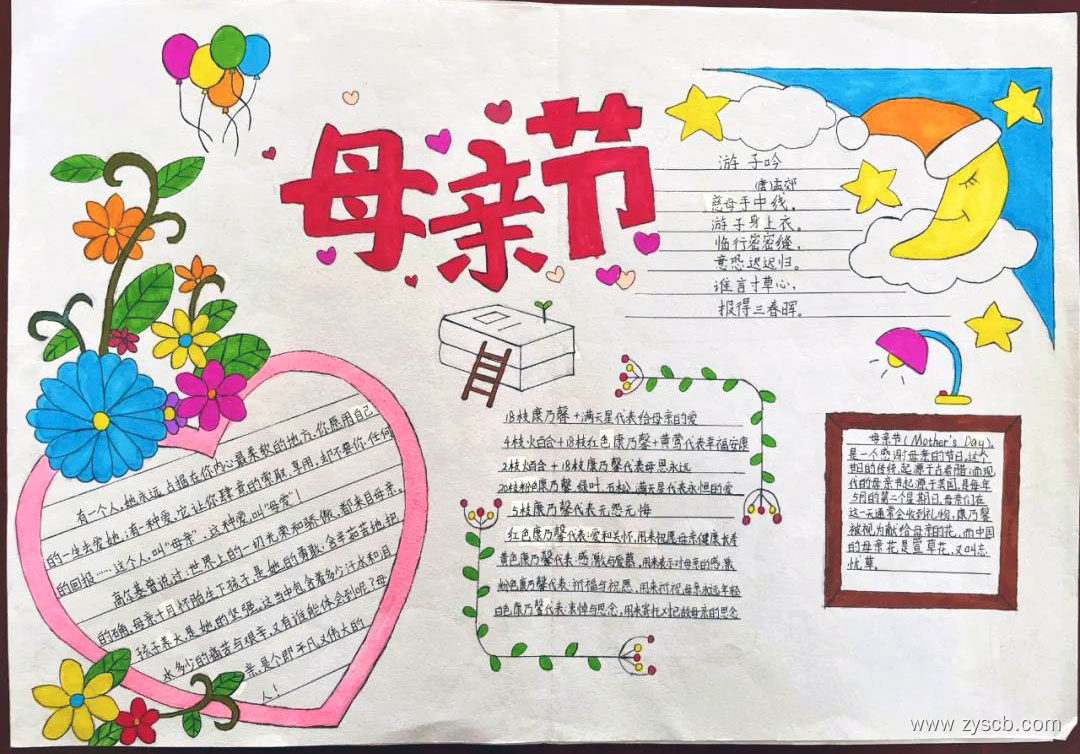 母亲节
游子吟
(唐)孟郊
慈母手中线，
游子身上衣。
临行密密缝，
意恐迟迟归。
谁言寸草心，
报得三春晖。
有一个人，她永远占据在你内心最柔软的地方，你愿用自己
的一生去爱她；有一种爱，它让你肆意的爱取、享用，却不要你任何
的回报……这个人，叫“母亲”，这种爱，叫“母爱”！
高尔基曾说过：世界上的一切光荣和骄傲，都来自母亲。
的确，母亲十月怀胎生下孩子，是她的勇敢；含辛茹苦地把
孩子养大，是她的坚强。这当中包含着多少汗水和月
水多少的痛苦与艰辛，又有谁能体会到呢？母
亲，是个即平凡又伟大的
人！
18枝康乃馨+满天星代表给母亲的爱
4枝火百合+18枝红色康乃馨+黄莺代表幸福安康
2枝火百合+18枝康乃馨代表母恩永远
20枝粉色康乃馨 绿叶 石松 满天星代表永恒的爱
5枝康乃馨代表无怨无悔
红色康乃馨代表：爱和关怀，用来祝愿母亲健康长寿
黄色康乃馨代表：感激与爱慕，用来表示对母亲的感激
粉色康乃馨代表：祈福与祝愿，用来祈祝母亲永远年轻
白色康乃馨代表：哀悼与思念，用来寄托对已故母亲的思念
母亲节(Mother's Day)，
是一个感谢母亲的节日，这个
节日的传统，起源于古希腊；而现
代的母亲节起源于美国，是每年
5月的第二个星期日，母亲们在
这一天通常会收到礼物，康乃馨
被视为献给母亲的花，而中国
的母亲花是萱草花，又叫忘
忧草。
www.zyscb.com